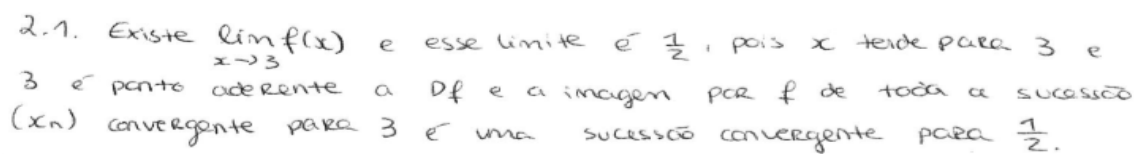 2.1. Existe lim f(x) e esse limite é 1/2, pois x tende para 3 e
x→3
3 é ponto aderente a Df e a imagem por f de toda a sucessão
(xn) convergente para 3 é uma sucessão convergente para 1/2.